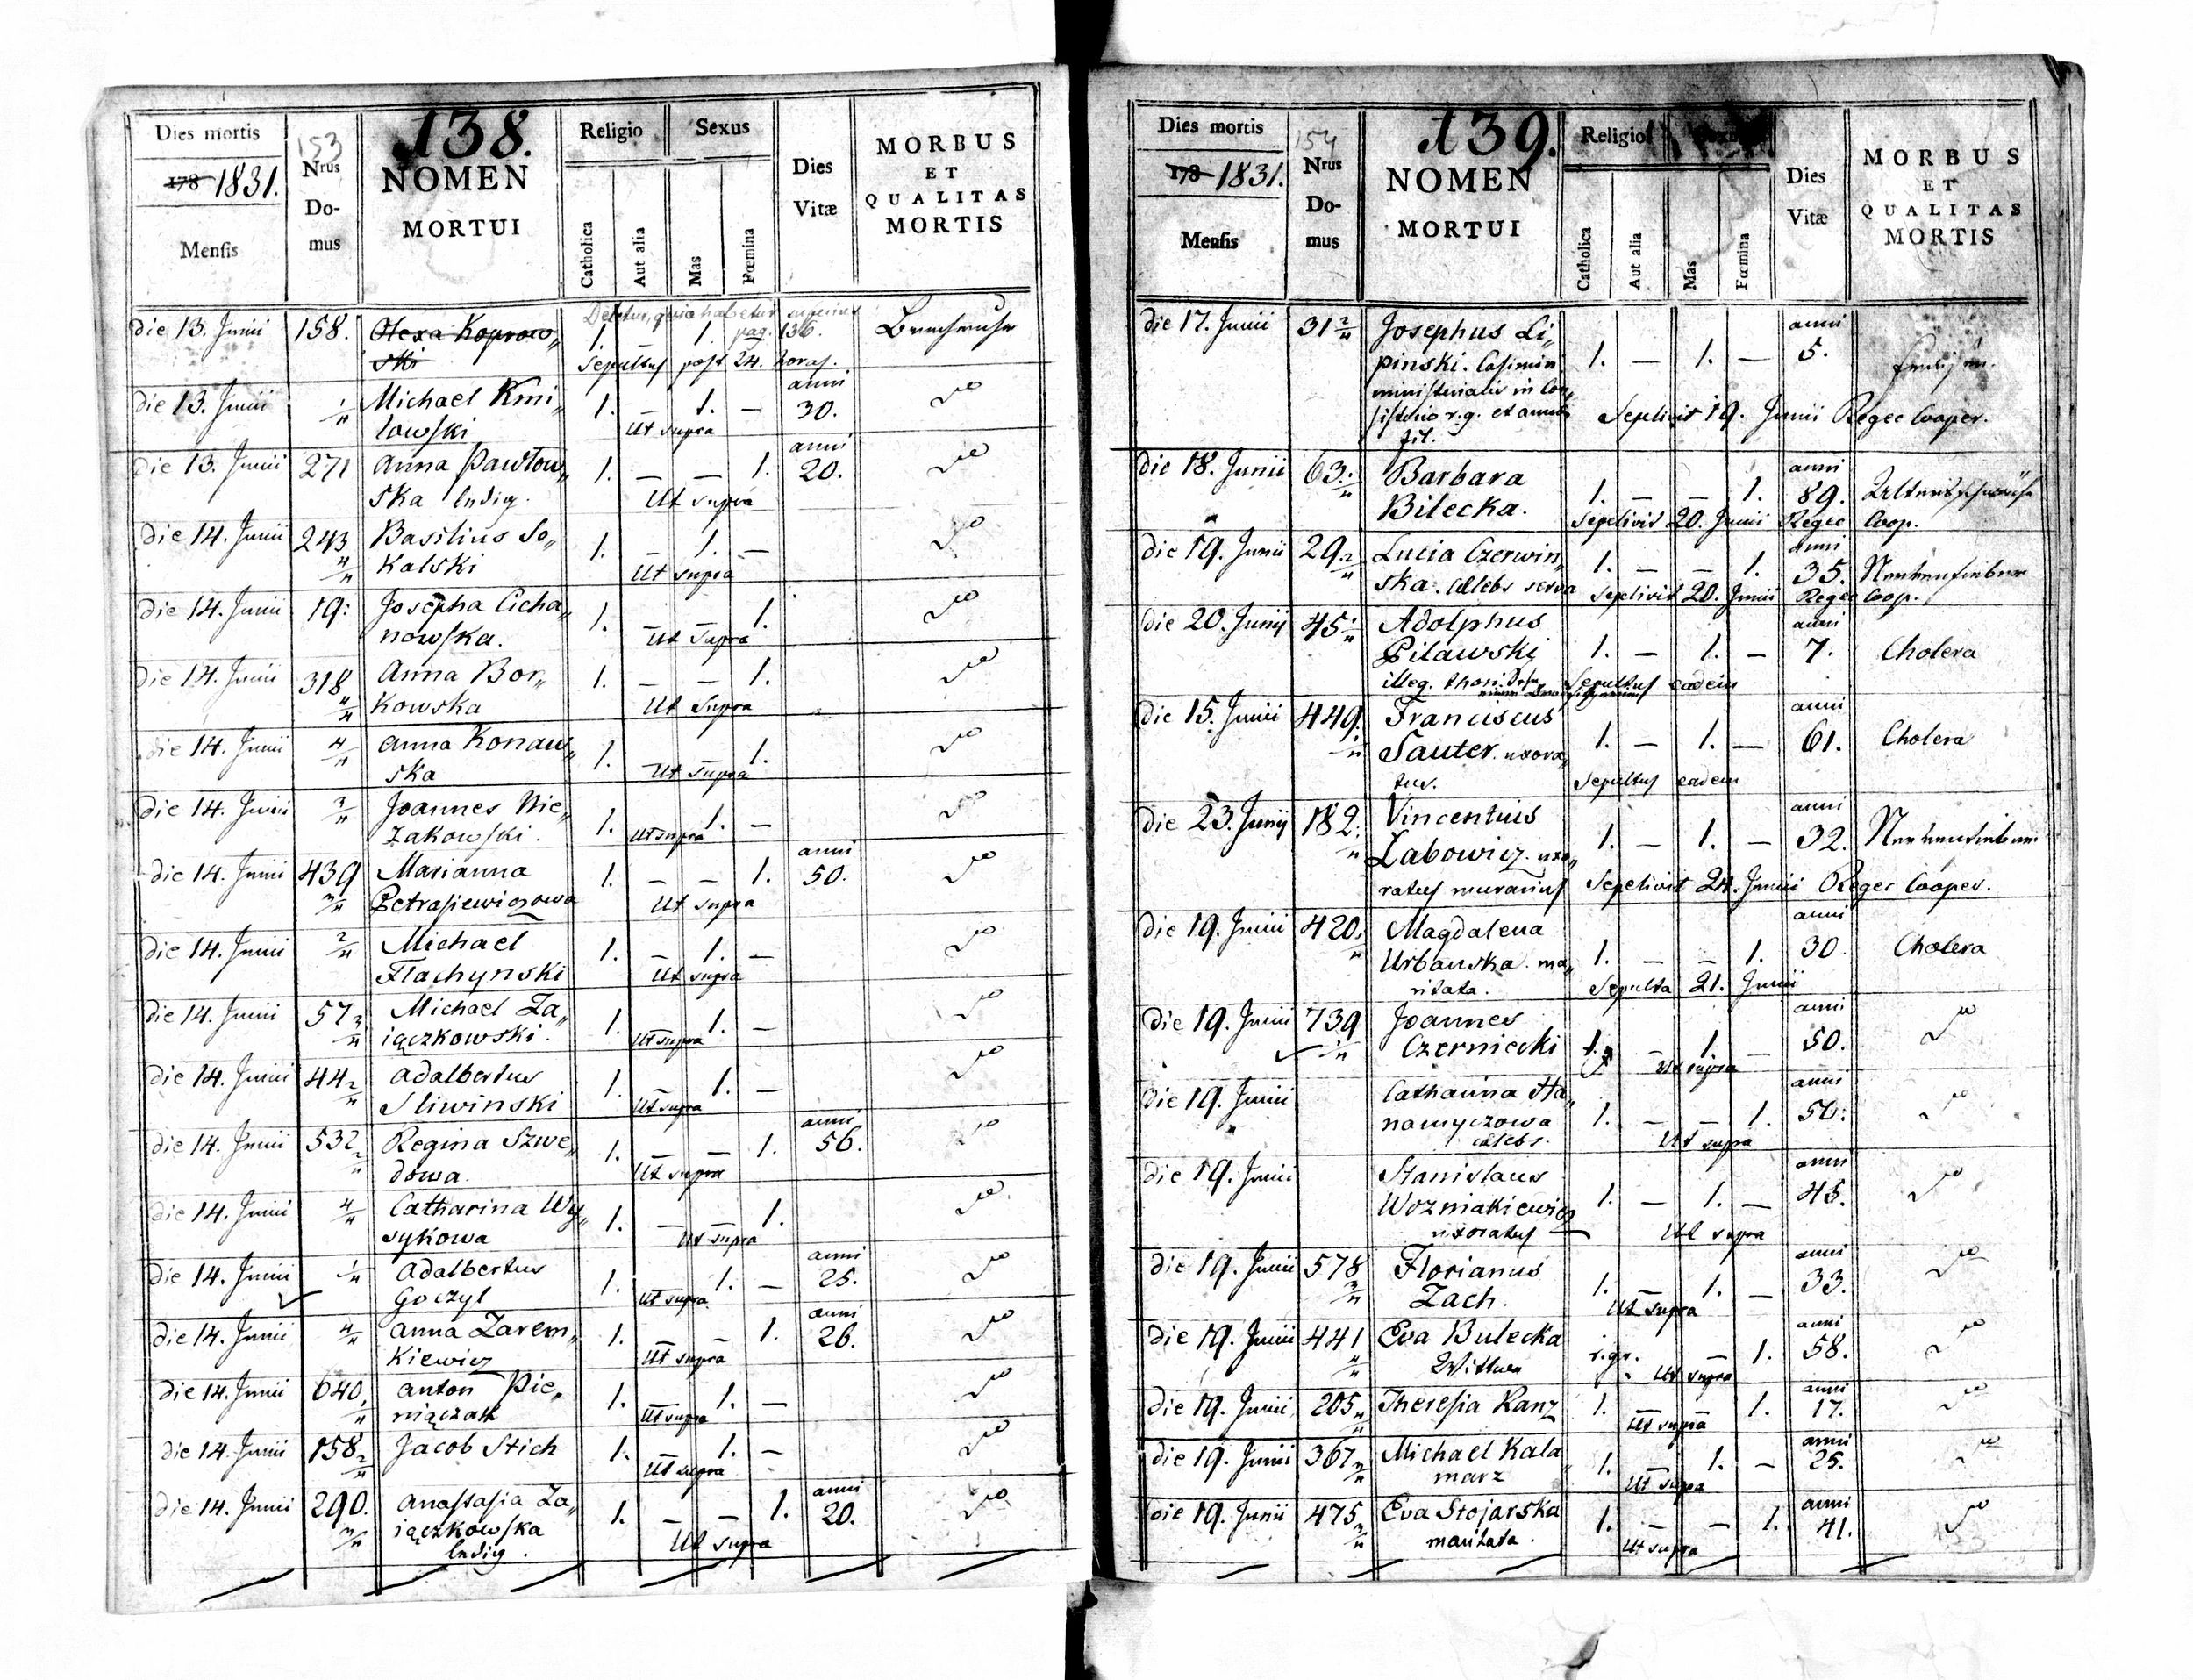 Dies mortis
178 1831.
Mensis
153
Nrus
Do-
mus
138.
NOMEN
MORTUI
Religio
Sexus
Catholica
Aut alia
Mas
Fœmina
Dies
Vitæ
MORBUS
ET
QUALITAS
MORTIS
Deletur, quia habetur superius
die 13. Junii 158. Olexa Koprow„ 1. — 1. pag. 136.
ski Sepultus post 24. horas.
die 13. Junii 1/4 Michael Kmi„ 1. — 1. — anni 30.
lowski Ut supra
die 13. Junii 271 Anna Pawlow„ 1. — — 1. anni 20.
ska ledig. Ut supra
die 14. Junii 243 4/4 Basilius So„ 1. — 1. —
kalski Ut supra
die 14. Junii 19. Josepha Cicha„ 1. — — 1.
nowska. Ut Supra
die 14. Junii 318 4/4 Anna Bor„ 1. — — 1.
kowska Ut Supra
die 14. Junii 4/4 Anna Konaw„ 1. — — 1.
ska Ut Supra
die 14. Junii 3/4 Joannes Nie„ 1. 1. —
zakowski. Ut supra
die 14. Junii 439 3/4 Marianna 1. — — 1. anni 50.
Petrasiewiczowa Ut supra
die 14. Junii 2/4 Michael 1. — 1. —
Flachynski Ut supra
die 14. Junii 57 3/4 Michael Za„ 1. — 1. —
iączkowski. Ut supra
die 14. Junii 44 2/4 Adalbertus 1. — 1. —
Sliwinski Ut supra
die 14. Junii 532 2/4 Regina Szwe„ 1. — — 1. anni 56.
dowa. Ut supra
die 14. Junii 4/4 Catharina Wy„ 1. — — 1.
sykowa Ut supra
die 14. Junii 1/4 Adalbertus 1. 1. — anni 25.
Goczyl Ut supra
die 14. Junii 4/4 Anna Zarem„ 1. — — 1. anni 26.
kiewicz Ut supra
die 14. Junii 640. Anton Pie„ 1. — 1. —
niączak Ut supra
die 14. Junii 158 2/4 Jacob Stich 1. — 1. —
Ut supra
die 14. Junii 290. 3/4 Anastasia Za„ 1. — — 1. anni 20.
iączkowska
ledig. Ut supra
Dies mortis
178 1831.
Mensis
154
Nrus
Do-
mus
139.
NOMEN
MORTUI
Religio
Catholica
Aut alia
Mas
Fœmina
Dies
Vitæ
MORBUS
ET
QUALITAS
MORTIS
die 17. Junii 31 2/4 Josephus Li„ anni
pinski. Casimiri 1. — 1. — 5.
ministerialis in Con„
sistorio r.g. et Sepelivit 19. Junii Reger Cooper.
fil.
die 18. Junii 63. Barbara anni
Bilecka. 1. — — 1. 89. Altersschwäche
Sepelivit 20. Junii Reger Coop.
die 19. Junii 29 2/4 Lucia Czerwin„ 1. — — 1. anni 35. Nervenfieber
ska. cælebs serva Sepelivit 20. Junii Reger Coop.
die 20. Junij 45 1/4 Adolphus anni
Pilawski 1. — 1. — 7. Cholera
illeg. thori. Sepultus eadem
die 15. Junii 449 1/4 Franciscus anni
Sauter. uxora„ 1. — 1. — 61. Cholera
tus. Sepultus eadem
die 23. Junij 182. Vincentius anni
Zabowicz. uxo„ 1. — 1. — 32. Nervenfieber
ratus murarius Sepelivit 24. Junii Reger Cooper.
die 19. Junii 420. Magdalena anni
Urbanska. ma„ 1. — — 1. 30. Cholera
ritata. Sepulta 21. Junii
die 19. Junii 739 1/4 Joannes anni
Czerniecki 1. — 1. — 50.
Ut supra
die 19. Junii Catharina Ha„ anni
namyczowa 1. — — 1. 50.
cælebs. Ut supra
die 19. Junii Stanislaus anni
Wozniakiewicz 1. — 1. — 45.
uxoratus — Ut supra
die 19. Junii 578 3/4 Florianus anni
Zach. 1. — 1. — 33.
Ut supra
die 19. Junii 441 4/4 Eva Bulecka r.gr. — 1. anni 58.
Wittwe Ut supra
die 19. Junii 205 Theresia Kanz 1. — — 1. anni 17.
Ut supra
die 19. Junii 367 Michael Kala„ 1. — 1. — anni 25.
marz Ut supra
die 19. Junii 475 3/4 Eva Stojarska 1. — — 1. anni 41.
maritata. Ut supra